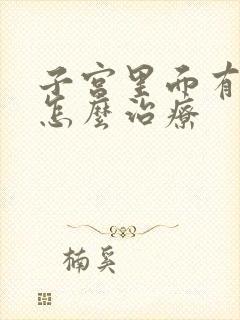 子宫里面有
怎麼治療
楠奚